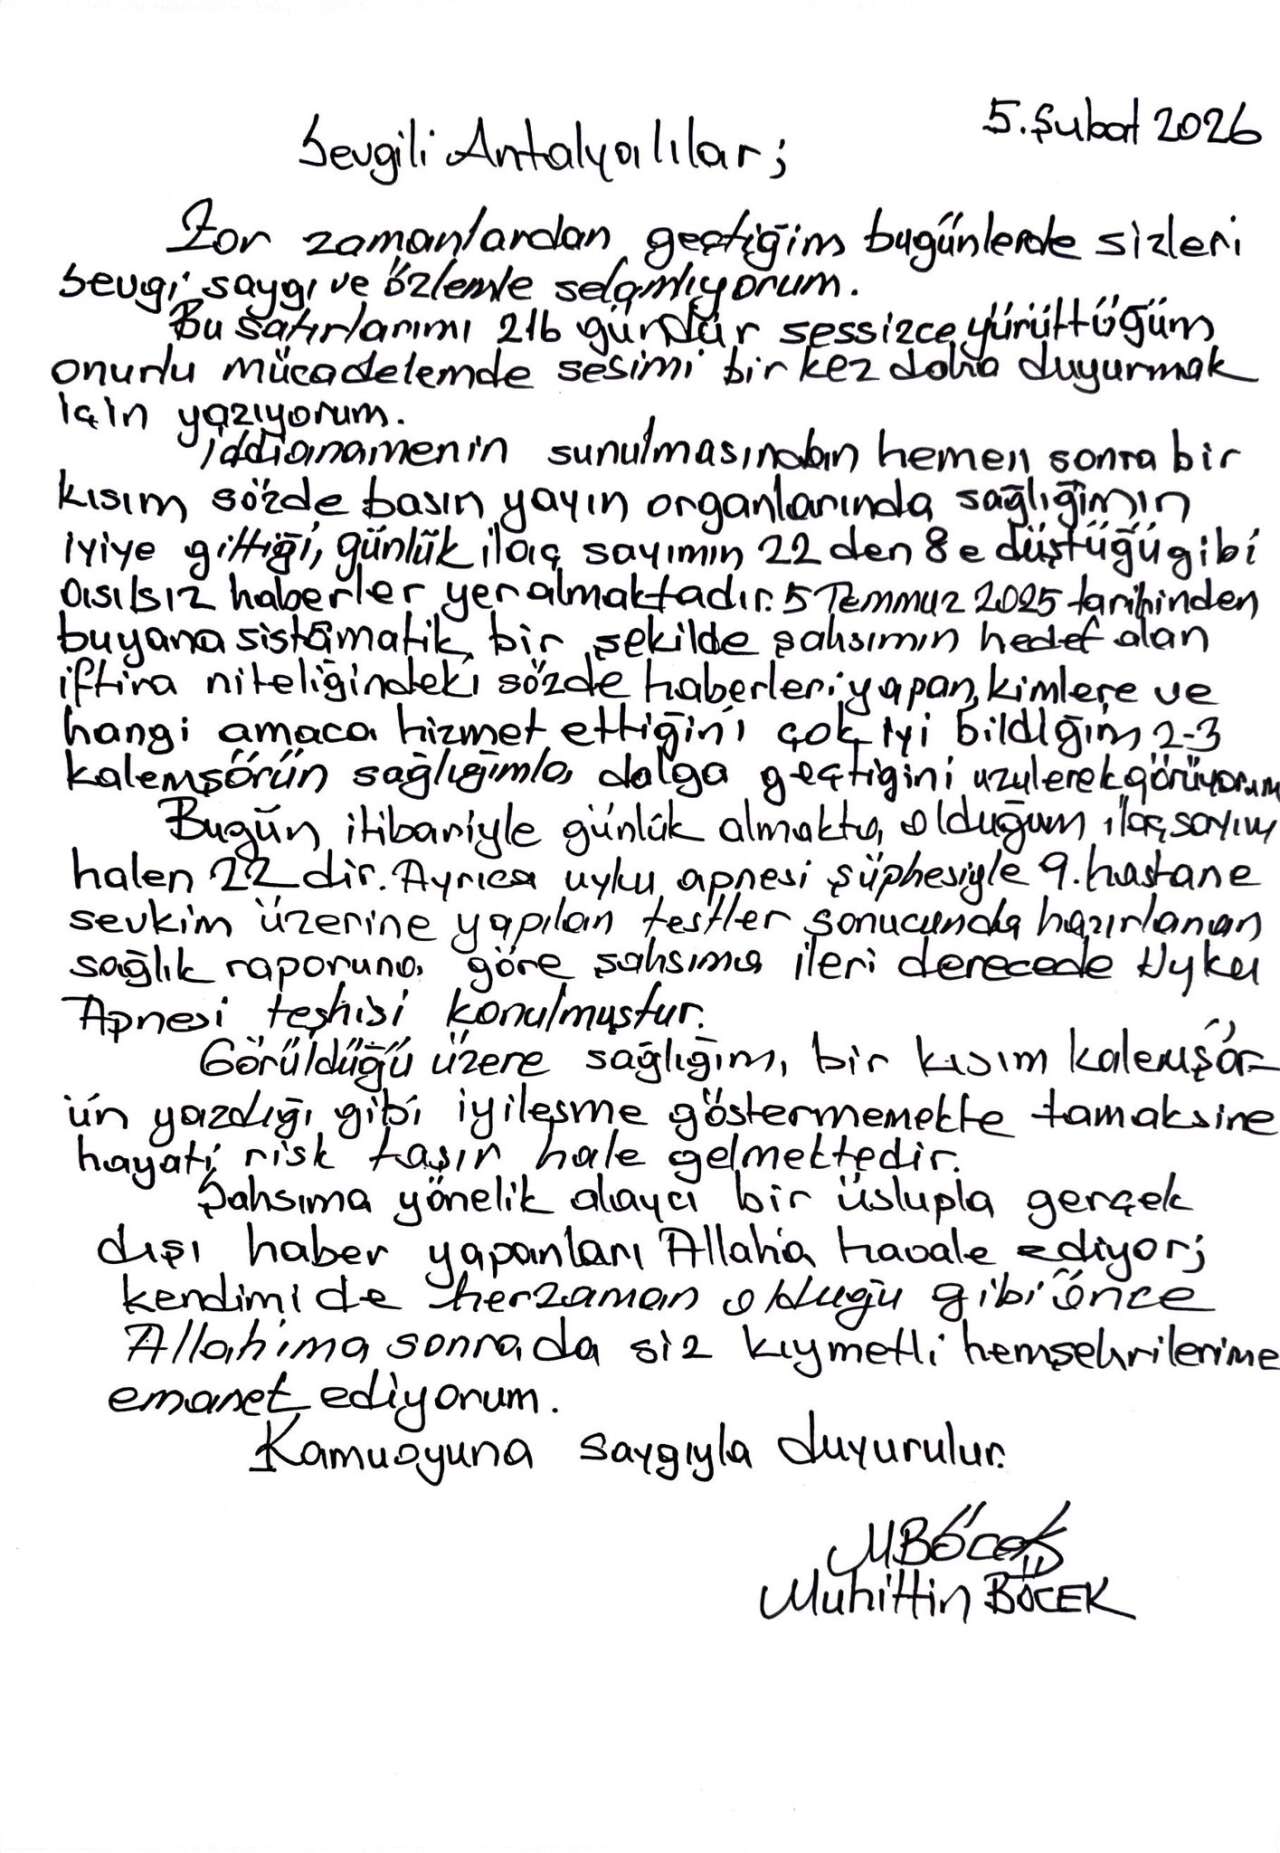 5. Şubat 2026
Sevgili Antalyalılar;
Zor zamanlardan geçtiğim bugünlerde sizleri
sevgi saygı ve özlemle selamlıyorum.
Bu satırlarımı 216 gündür sessizce yürüttüğüm
onurlu mücadelemde sesimi bir kez daha duyurmak
için yazıyorum.
İddianamenin sunulmasından hemen sonra bir
kısım sözde basın yayın organlarında sağlığımın
iyiye gittiği, günlük ilaç sayımın 22 den 8 e düştüğü gibi
asılsız haberler yer almaktadır. 5 Temmuz 2025 tarihinden
buyana sistamatik bir şekilde şahsımın hedef alan
iftira niteliğindeki sözde haberleri yapan, kimlere ve
hangi amaca hizmet ettiğini çok iyi bildiğim 2-3
kalemşörün sağlığımla dalga geçtigini üzülerek görüyorum
Bugün itibariyle günlük almakta olduğum ilaç sayım
halen 22 dir. Ayrıca uyku apnesi şüphesiyle 9. hastane
sevkim üzerine yapılan testler sonucunda hazırlanan
sağlık raporuna göre şahsıma ileri derecede Uyku
Apnesi teşhisi konulmuştur.
Görüldüğü üzere sağlığım, bir kısım kalemşör-
ün yazdığı gibi iyileşme göstermemekte tamaksine
hayati risk taşır hale gelmektedir.
Şahsıma yönelik alaycı bir üslupla gerçek
dışı haber yapanları Allaha havale ediyor;
kendimi de herzaman olduğu gibi önce
Allahıma sonra da siz kıymetli hemşehrilerime
emanet ediyorum.
Kamuoyuna saygıyla duyurulur.
MBöcek
Muhittin BÖCEK